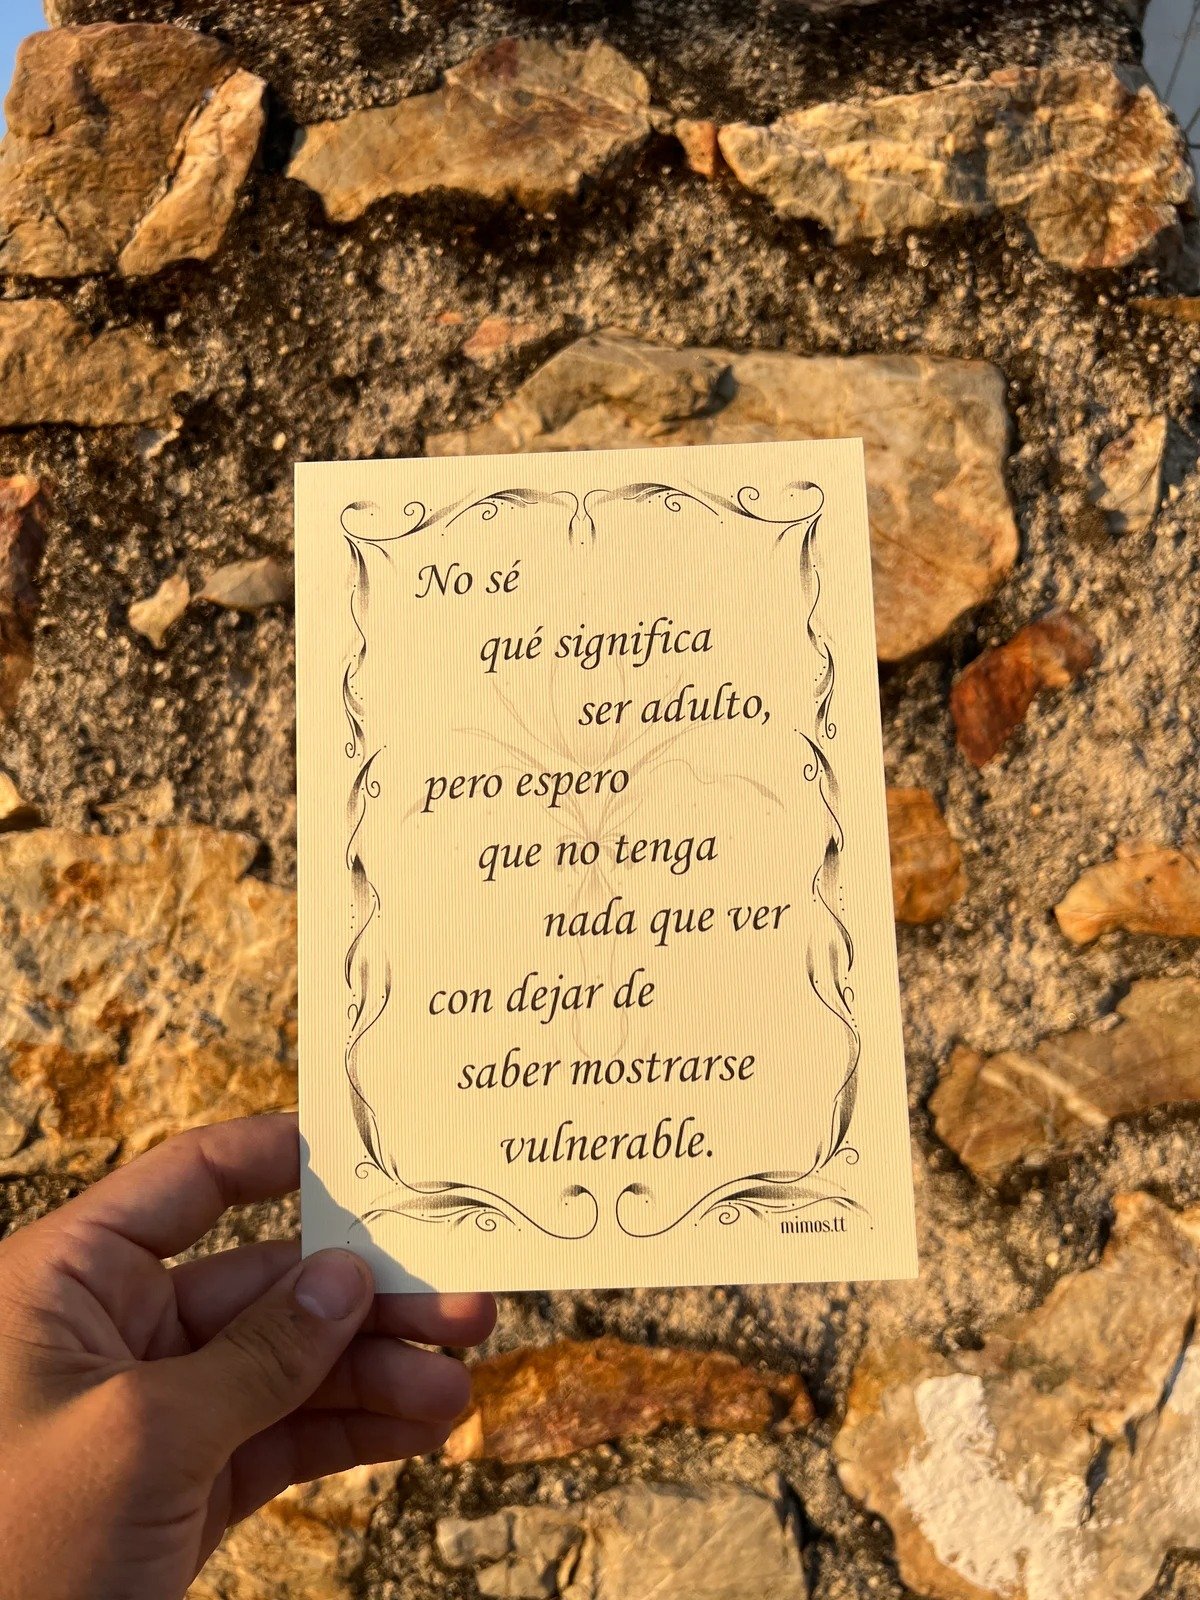 No sé
qué significa
ser adulto,
pero espero
que no tenga
nada que ver
con dejar de
saber mostrarse
vulnerable.
mimos.tt